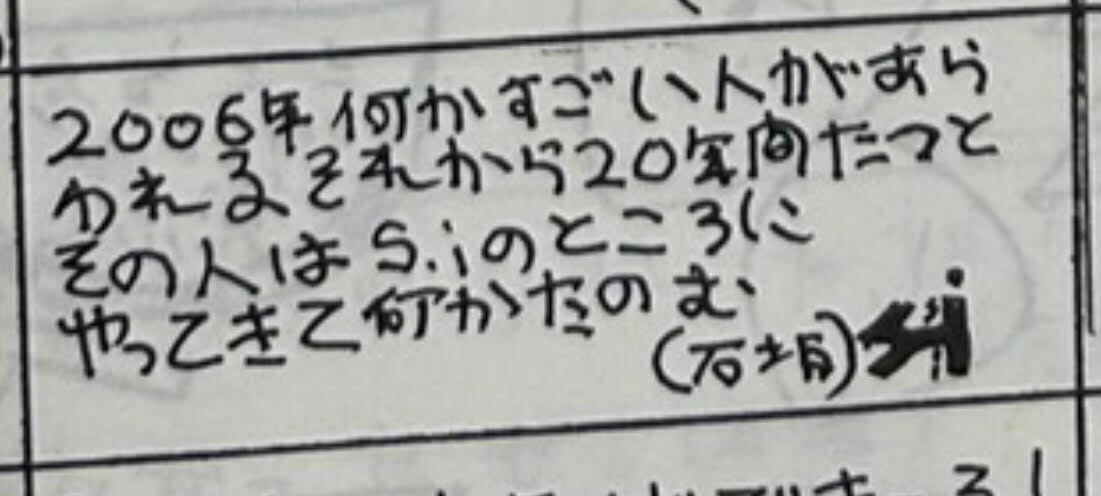 2006年何かすごい人があら
われるそれから20年間たつと
その人はS.iのところに
やってきて何かたのむ
(石垣)